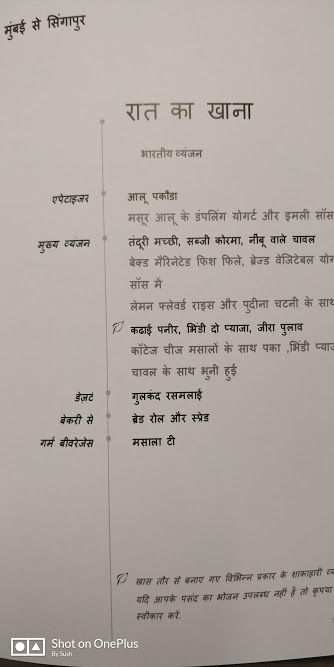 मुंबई से सिंगापुर
रात का खाना
भारतीय व्यंजन
एपेटाइजर आलू पकौडा
मसूर आलू के डंपलिंग योगर्ट और इमली सॉस
मुख्य व्यंजन तंदूरी मच्छी, सब्जी कोरमा, नींबू वाले चावल
बेक्ड मैरिनेटेड फिश फिले, ब्रेज्ड वेजिटेबल
सॉस में
लेमन फ्लेवर्ड राइस और पुदीना चटनी के साथ
कढाई पनीर, भिंडी दो प्याजा, जीरा पुलाव
कॉटेज चीज मसालों के साथ पका ,भिंडी
चावल के साथ भुनी हुई
डेज़र्ट गुलकंद रसमलाई
बेकरी से ब्रेड रोल और स्प्रेड
गर्म बीवरेजेस मसाला टी
खास तौर से बनाए गए विभिन्न प्रकार के शाकाहारी
यदि आपके पसंद का भोजन उपलब्ध नहीं है तो कृपया
स्वीकार करें.
Shot on OnePlus
By Sush